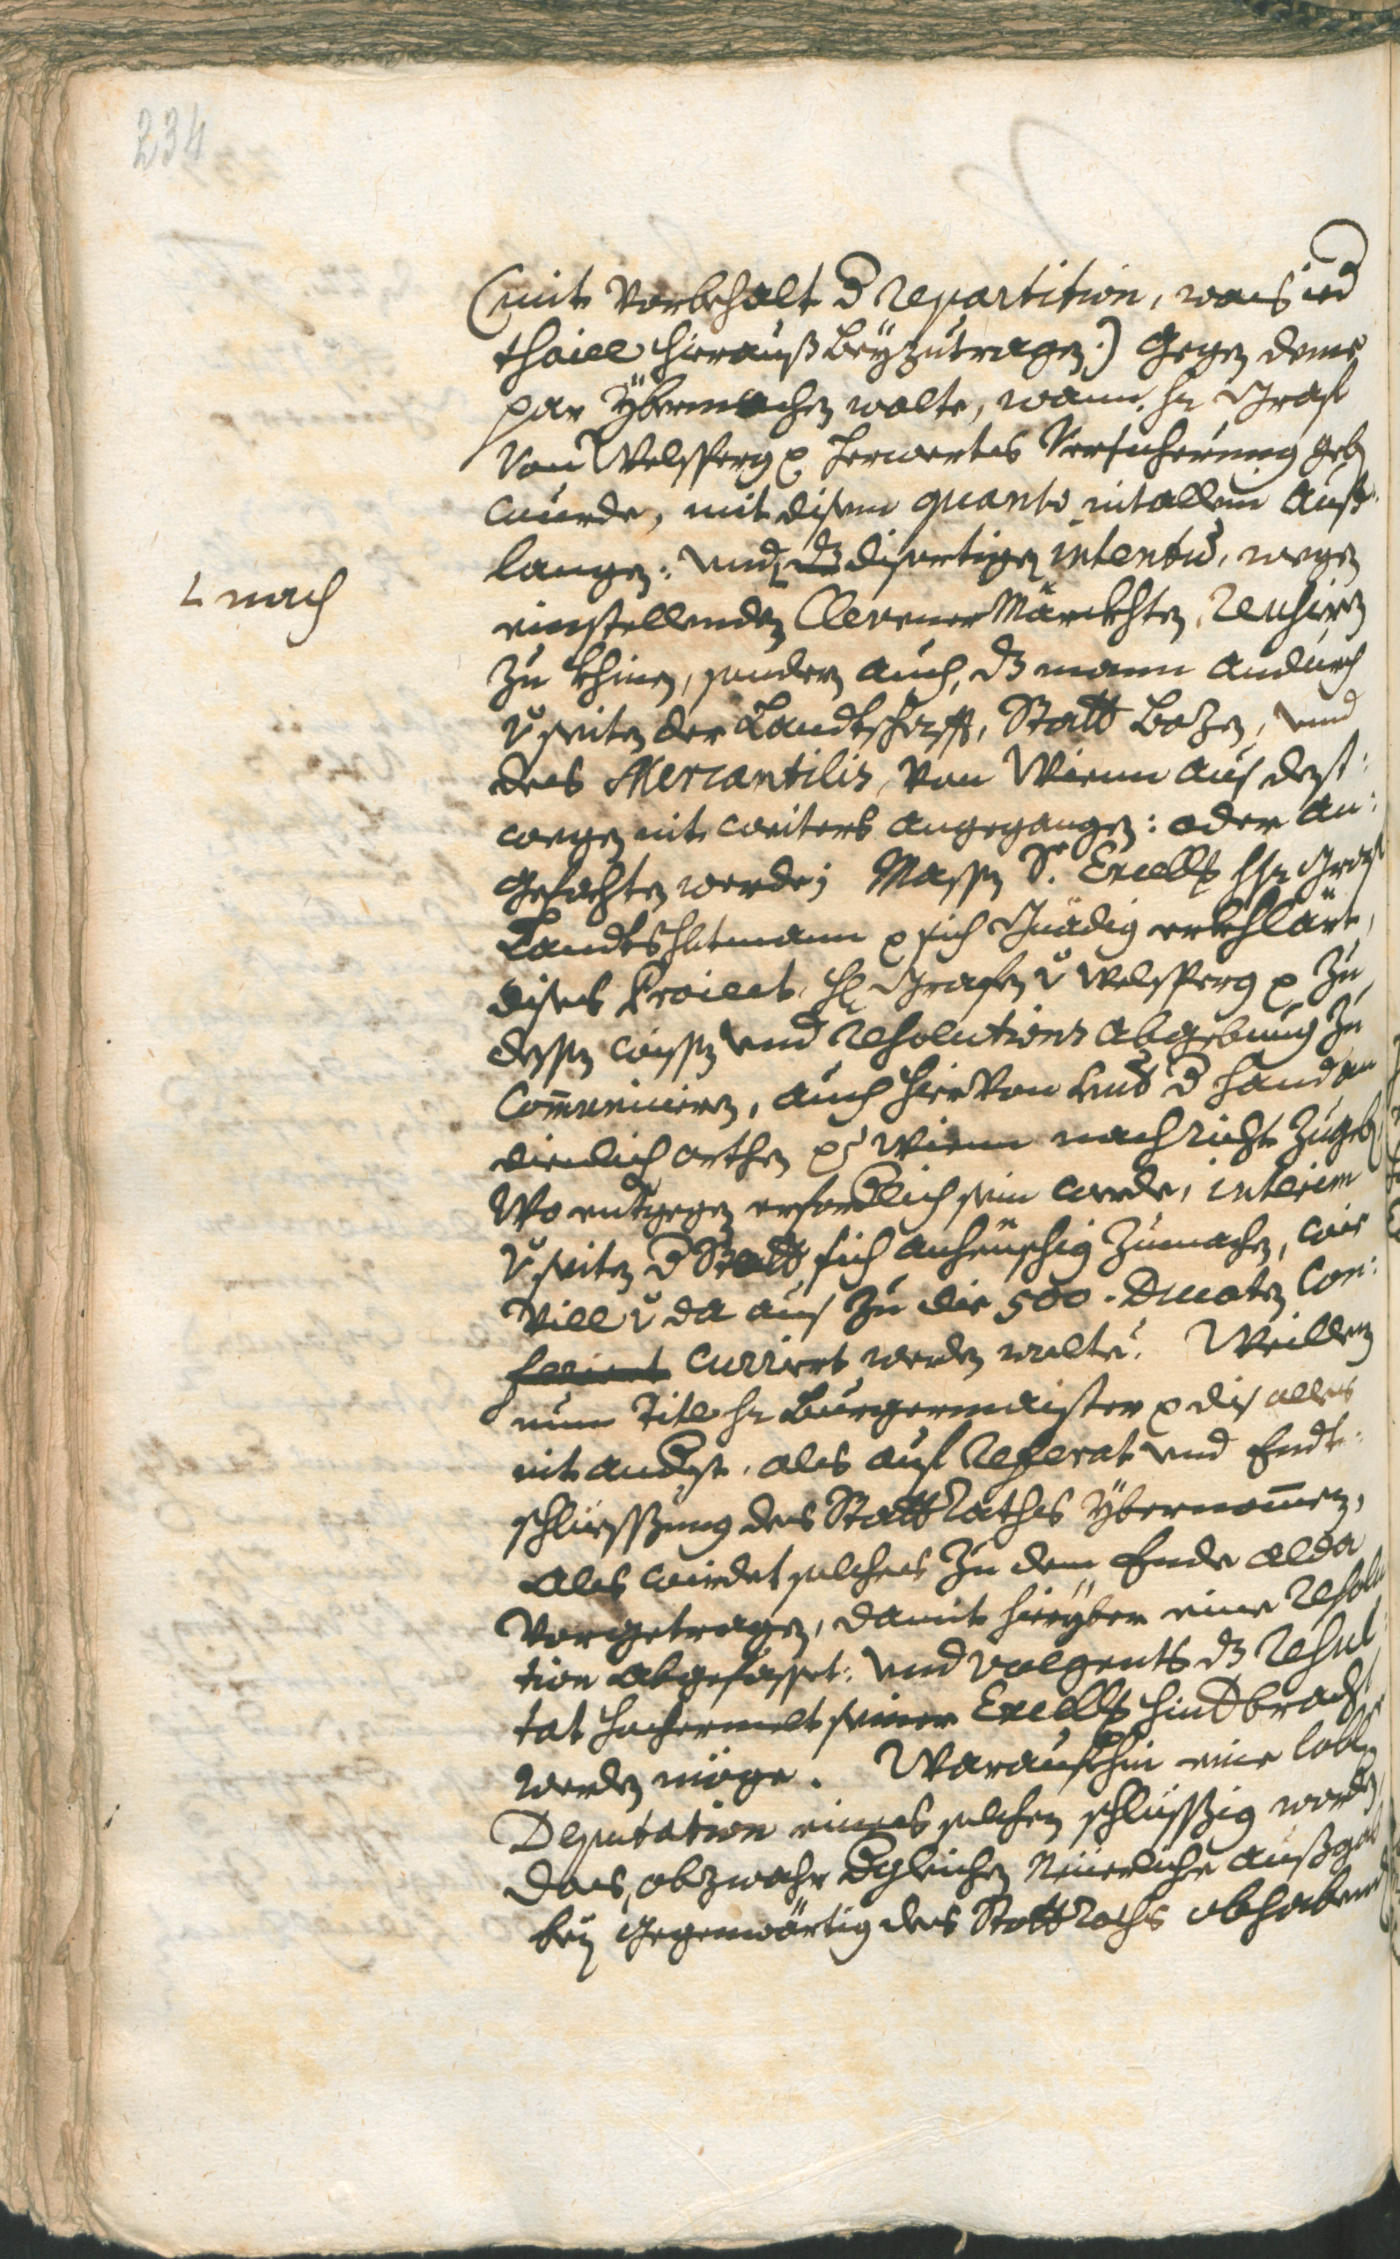 234
(mit Vorbehalt d repartition, was ied
thaill hieraus beyzutragen.) Gegen deme
par übermachen wolte, wann hr Graf
von Welsperg p herwerts Versicherung geben
wurde, mit disem quanto in allem auß
langen: und dißortigen intentũ, wegen
L nach
einstellenden Clevener Märckhten, reuhsirn
zu khinen, sondern auch, dz mann andurch
v seiten der Landtschafft, Statt Bozen, und
des Mercantilis, von Wienn aus dest:
wegen nit weiters angegangen: oder an:
gefochten werde; Massen Sr. Excell hr Graf
Landtshbtmann p sich Gnädig erkhlärt,
dises Proiect, hl Grafen v Welsperg p zu
dessen wissen und resolutions abgebung zu
Communicirn, auch hievon unter d hand an
dienlich orthen zu Wienn nachricht zugeben
Wo entgegen erfordlich sein werde, interim
v seiten d Statt sich anheüschig zumachen, wie
vill v da aus zu die 500. Ducaten Con:
curriert werden wolte? Weillen
nun Titl hr Burgermaister p dis alles
nit anderst, als auf Referat und Endt:
schliessung des Statt Raths übernommen,
Als wirdet solches zu dem Ende alda
vorgetragen, damit hierüber eine resolu
tion abgefasset: und volgents dz resul
tat hochermelt seiner Excell hindbracht
werden möge. Waraufhin eine lobl
Deputation eines solchen schlüssig worden,
das, obzwahr dgleichen Neüerliche außgab
bey gegenwärtig des Statt Raths obhabend